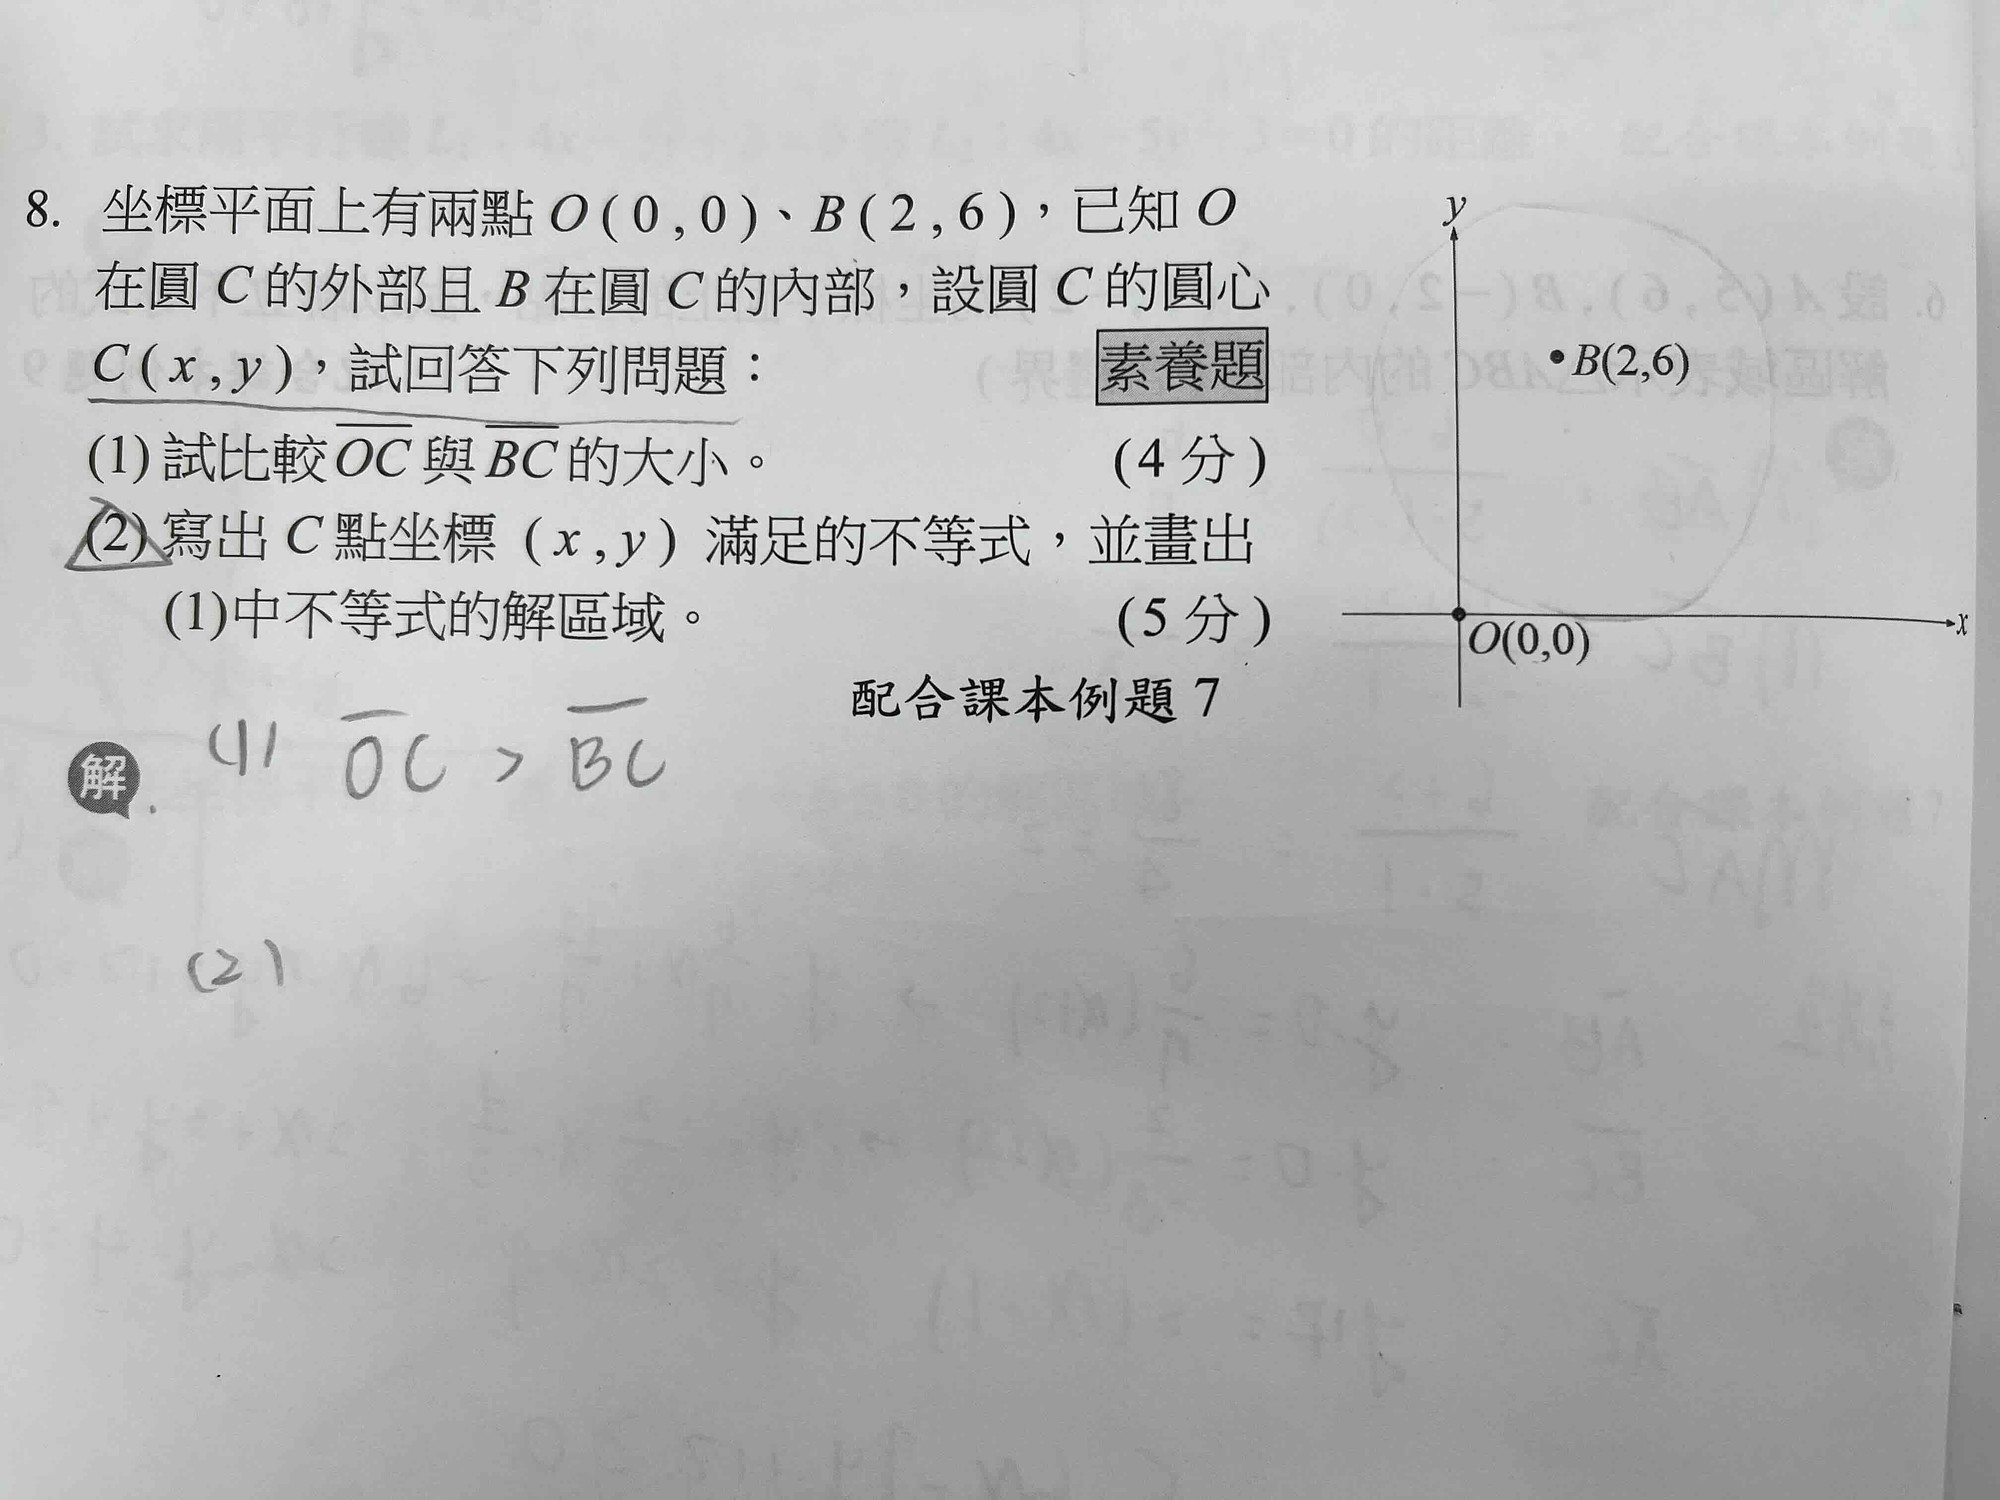 8. 坐標平面上有兩點 O ( 0 , 0 )、B ( 2 , 6 )，已知 O
在圓 C 的外部且 B 在圓 C 的內部，設圓 C 的圓心
C ( x , y )，試回答下列問題： 素養題
(1) 試比較 OC 與 BC 的大小。 (4 分)
(2) 寫出 C 點坐標 ( x , y ) 滿足的不等式，並畫出
(1)中不等式的解區域。 (5 分)
配合課本例題 7
y
B(2,6)
x
O(0,0)
解
(1) OC > BC
(2)